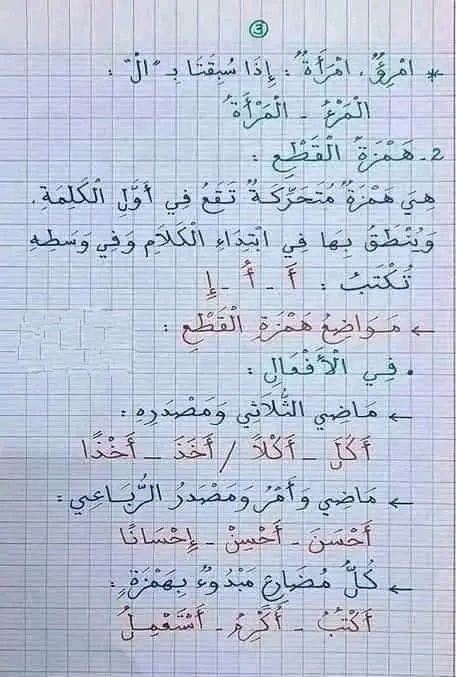 ③
* امْرِؤٌ، امْرَأَةٌ: إِذَا سُبِقَتَا بِـ "الْ":
الْمَرْءُ - الْمَرْأَةُ
2- هَمْزَةُ الْقَطْعِ:
هِيَ هَمْزَةٌ مُتَحَرِّكَةٌ تَقَعُ فِي أَوَّلِ الْكَلِمَةِ.
وَيُنْطَقُ بِهَا فِي ابْتِدَاءِ الْكَلَامِ وَفِي وَسَطِهِ
تُكْتَبُ: أَ - أُ - إِ
← مَوَاضِعُ هَمْزَةِ الْقَطْعِ:
• فِي الْأَفْعَالِ:
← مَاضِي الثُّلَاثِي وَمَصْدَرِهِ:
أَكَلَ - أَكْلًا / أَخَذَ - أَخْذًا
← مَاضِي وَأَمْرُ وَمَصْدَرُ الرُّبَاعِي:
أَحْسَنَ - أَحْسِنْ - إِحْسَانًا
← كُلُّ مُضَارِعٍ مَبْدُوءٌ بِهَمْزَةٍ:
أَكْتُبُ - أُكْرِمُ - أَسْتَعْمِلُ